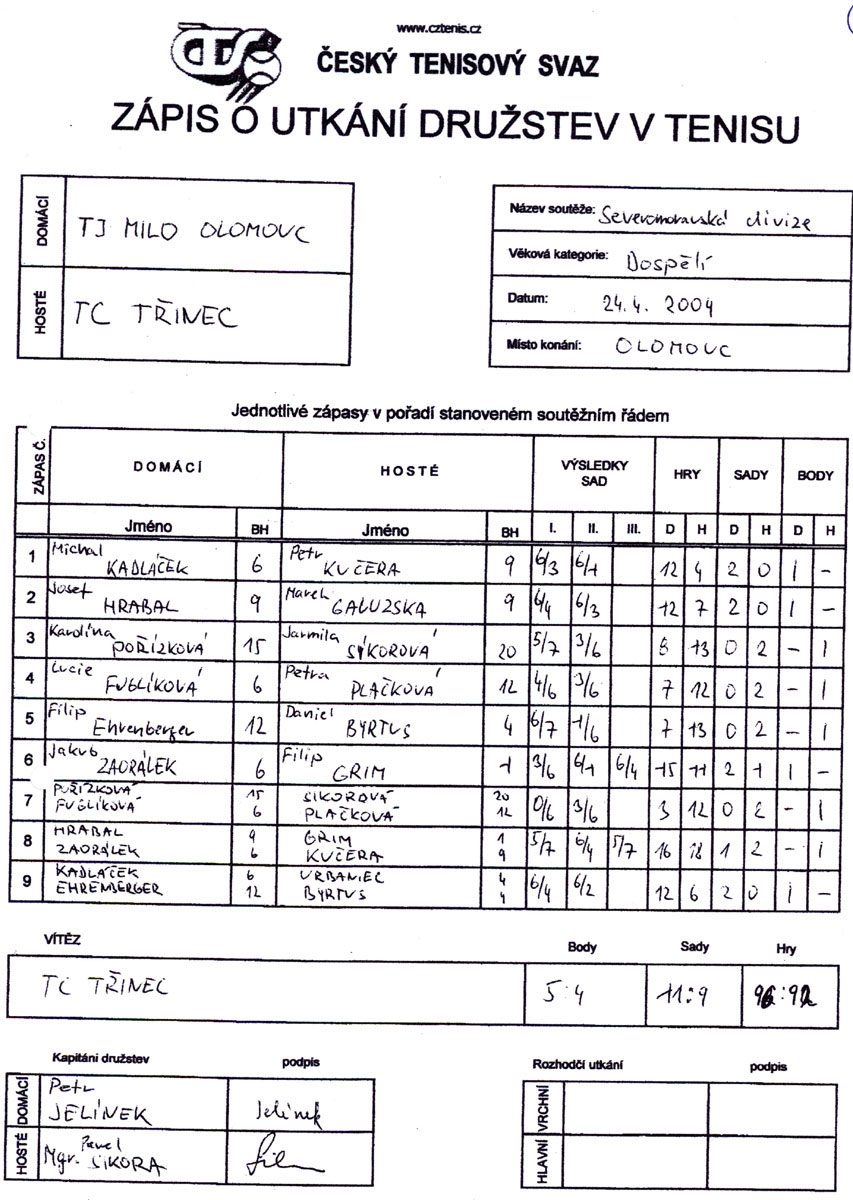 www.cztenis.cz
ČTS
ČESKÝ TENISOVÝ SVAZ
ZÁPIS O UTKÁNÍ DRUŽSTEV V TENISU
DOMÁCÍ TJ MILO OLOMOUC
HOSTÉ TC TŘINEC
Název soutěže: Severomoravská divize
Věková kategorie: Dospělí
Datum: 24.4. 2004
Místo konání: OLOMOUC
Jednotlivé zápasy v pořadí stanoveném soutěžním řádem
ZÁPAS Č. DOMÁCÍ HOSTÉ VÝSLEDKY SAD HRY SADY BODY
Jméno BH Jméno BH I. II. III. D H D H D H
1 Michal KADLÁČEK 6 Petr KUČERA 9 6/3 6/1 12 4 2 0 1 -
2 Josef HRABAL 9 Marek GALUZSKA 9 6/4 6/3 12 7 2 0 1 -
3 Karolína POŘÍZKOVÁ 15 Jarmila SÝKOROVÁ 20 5/7 3/6 8 13 0 2 - 1
4 Lucie FUGLÍKOVÁ 6 Petra PLAČKOVÁ 12 4/6 3/6 7 12 0 2 - 1
5 Filip Ehrenberger 12 Daniel BYRTUS 4 6/7 1/6 7 13 0 2 - 1
6 Jakub ZAORÁLEK 6 Filip GRIM 1 3/6 6/1 6/4 15 11 2 1 1 -
7 POŘÍZKOVÁ 15 SIKOROVÁ 20 0/6 3/6 3 12 0 2 - 1
FUGLÍKOVÁ 6 PLAČKOVÁ 12
8 HRABAL 9 GRIM 1 5/7 6/4 5/7 16 18 1 2 - 1
ZAORÁLEK 6 KUČERA 9
9 KADLÁČEK 6 URBANIEC 4 6/4 6/2 12 6 2 0 1 -
EHRENBERGER 12 BYRTUS 4
VÍTĚZ Body Sady Hry
TC TŘINEC 5:4 11:9
Kapitáni družstev podpis
DOMÁCÍ Petr JELÍNEK Jelínek
HOSTÉ Mgr. Pavel SIKORA
Rozhodčí utkání podpis
VRCHNÍ
HLAVNÍ